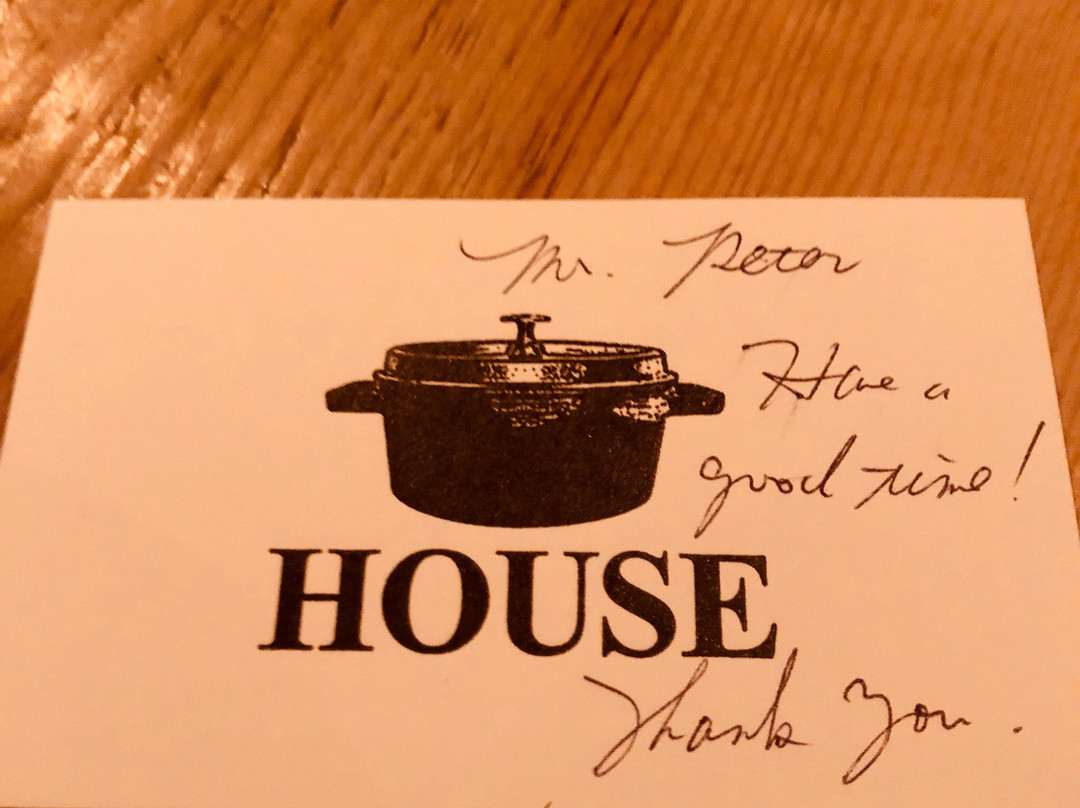 Mr. Peter
Have a
good time!
HOUSE
Thank you.